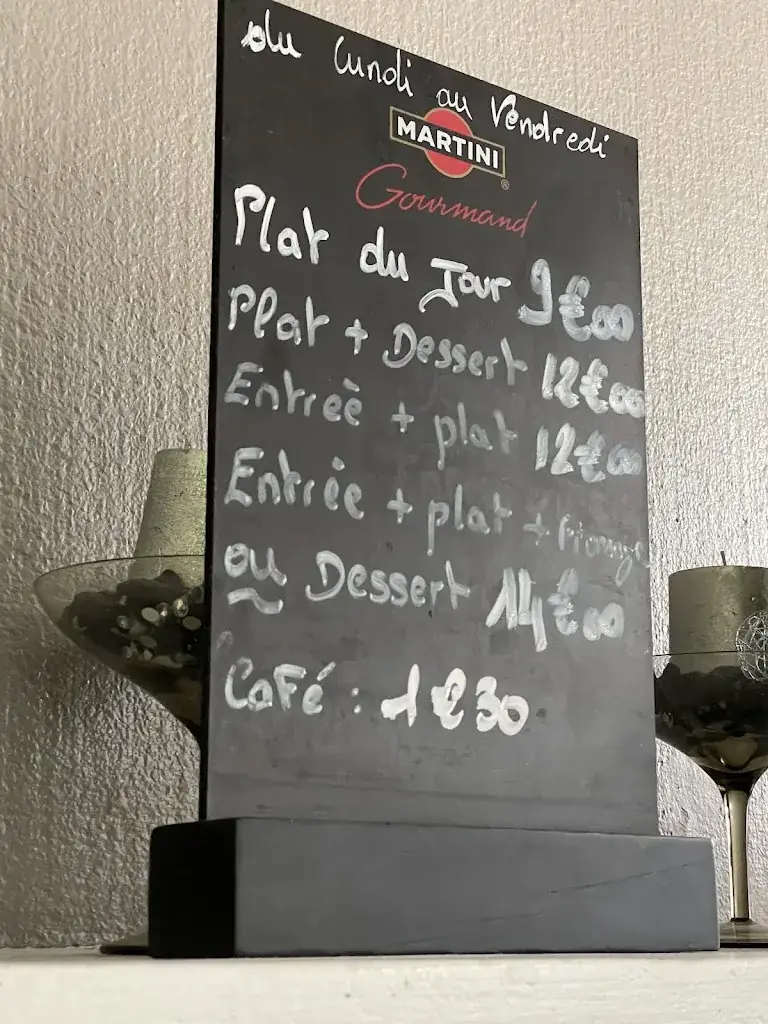 du lundi au Vendredi
MARTINI
®
Gourmand
Plat du Jour 9€00
Plat + Dessert 12€00
Entreè + plat 12€00
Entrèe + plat + fromage
ou Dessert 14€00
Café : 1€30